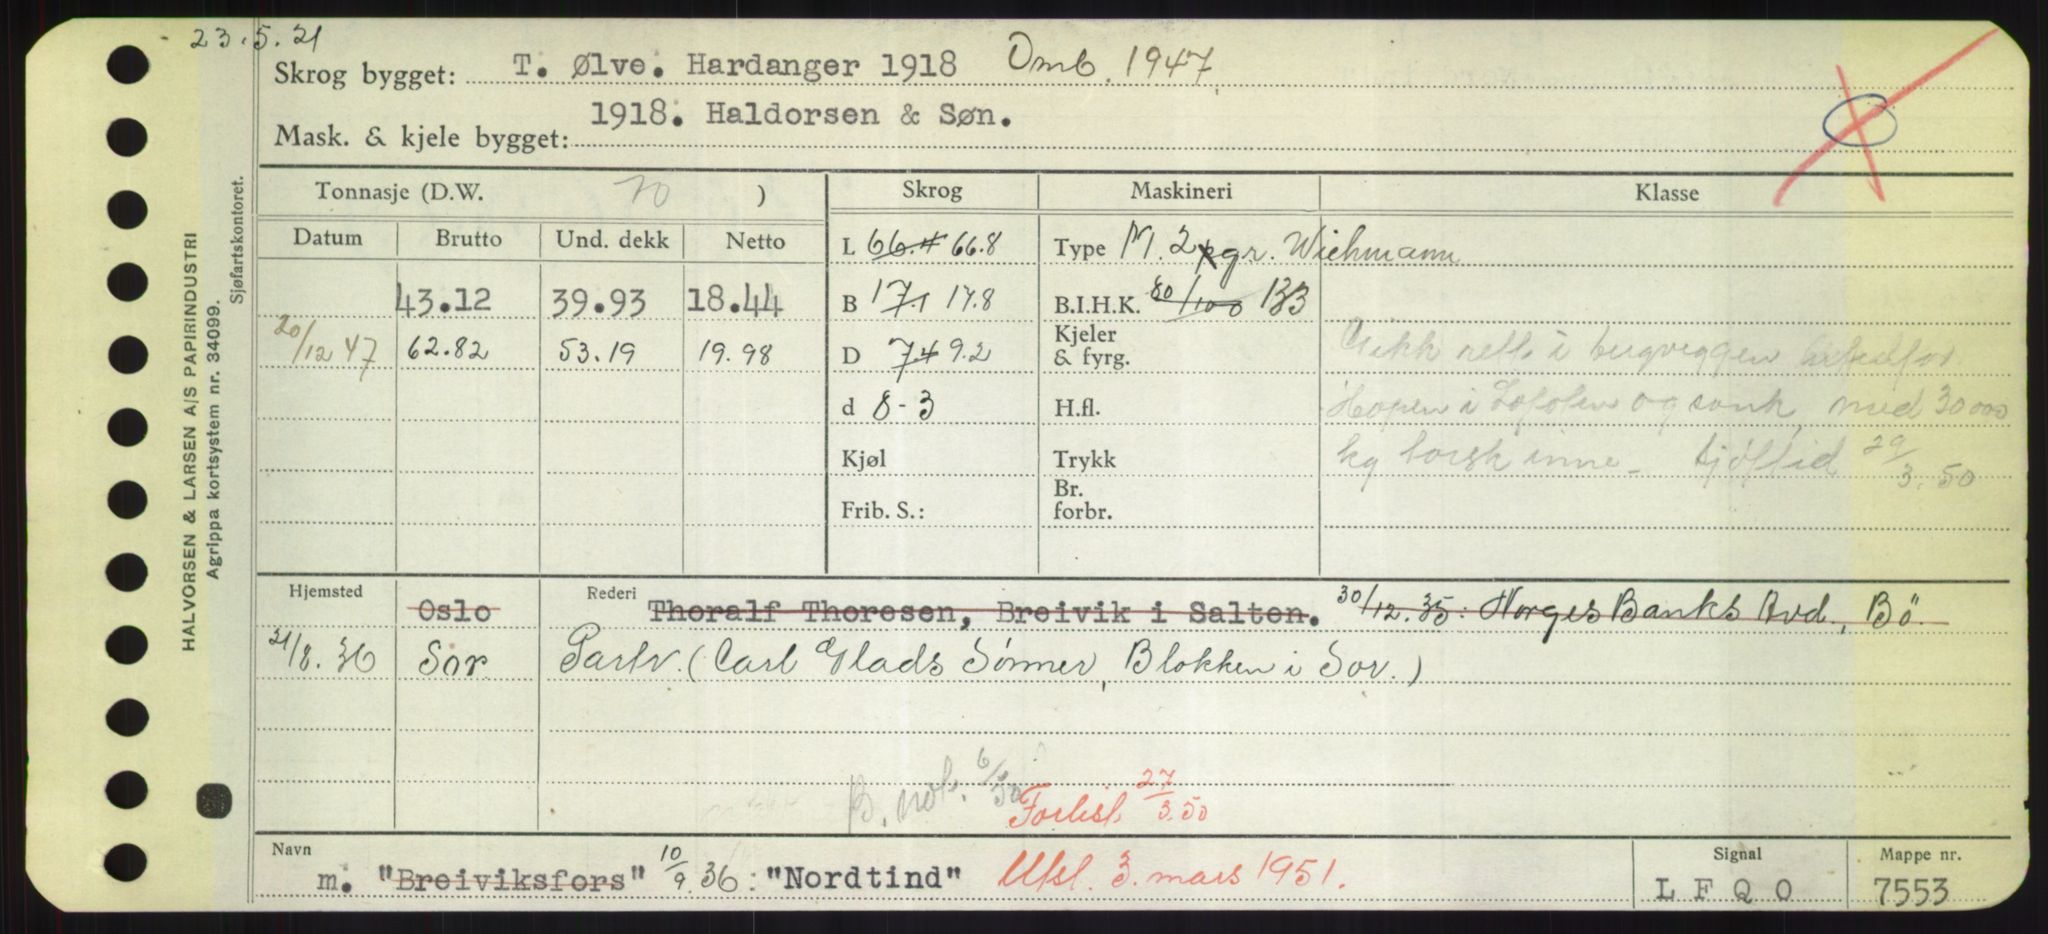 23.5.21
Skrog bygget: T. Ølve. Hardanger 1918 Omb. 1947
Mask. & kjele bygget: 1918. Haldorsen & Søn.
Tonnasje (D.W. 70 ) Skrog Maskineri Klasse
Datum Brutto Und. dekk Netto L 66.4 66.8 Type M. 2 gr. Wichmann
43.12 39.93 18.44 B 17.1 17.8 B.I.H.K. 80/100 133
20/12 47 62.82 53.19 19.98 D 7.4 9.2 Kjeler & fyrg.
Gikk rett i bergveggen
d 8-3 H.fl. Hopen i Lofoten og sank med 30 000
Kjøl Trykk kg torsk inne - Sjøftid 29/3.50
Frib. S.: Br. forbr.
Hjemsted Oslo Rederi Thoralf Thoresen, Breivik i Salten. 30/12.35: Norges Banks Avd., Bö.
21/8.36 Sor Partr. (Carl Glads Sönner, Blokken i Sor.)
B. not. 6/50 Forlist 27/3.50
Navn m. "Breiviksfors" 10/9.36: "Nordtind" Utsl. 3. mars 1951. Signal LFQO Mappe nr. 7553
HALVORSEN & LARSEN A/S PAPIRINDUSTRI
Agrippa kortsystem nr. 34099.
Sjøfartskontoret.